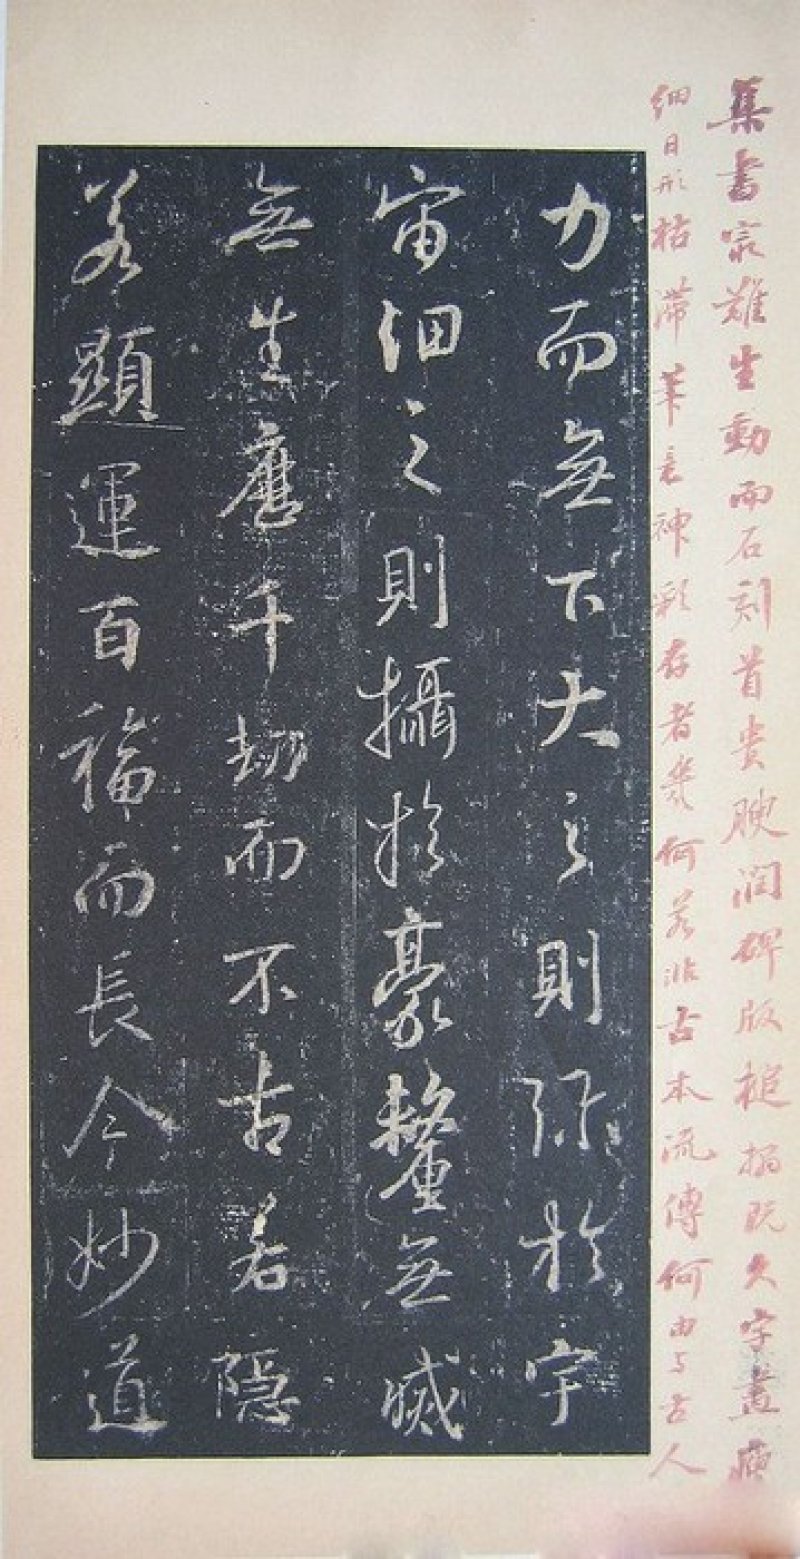 集書最難生動而石刻首貴腴潤碑版搥搨既久字畫瘦
細日形枯滞筆意神彩存者幾何若非古本流傳何由与古人
力而無下大之則弥於宇
宙細之則攝於豪釐無滅
無生歷千劫而不古若隱
若顯運百福而長今妙道